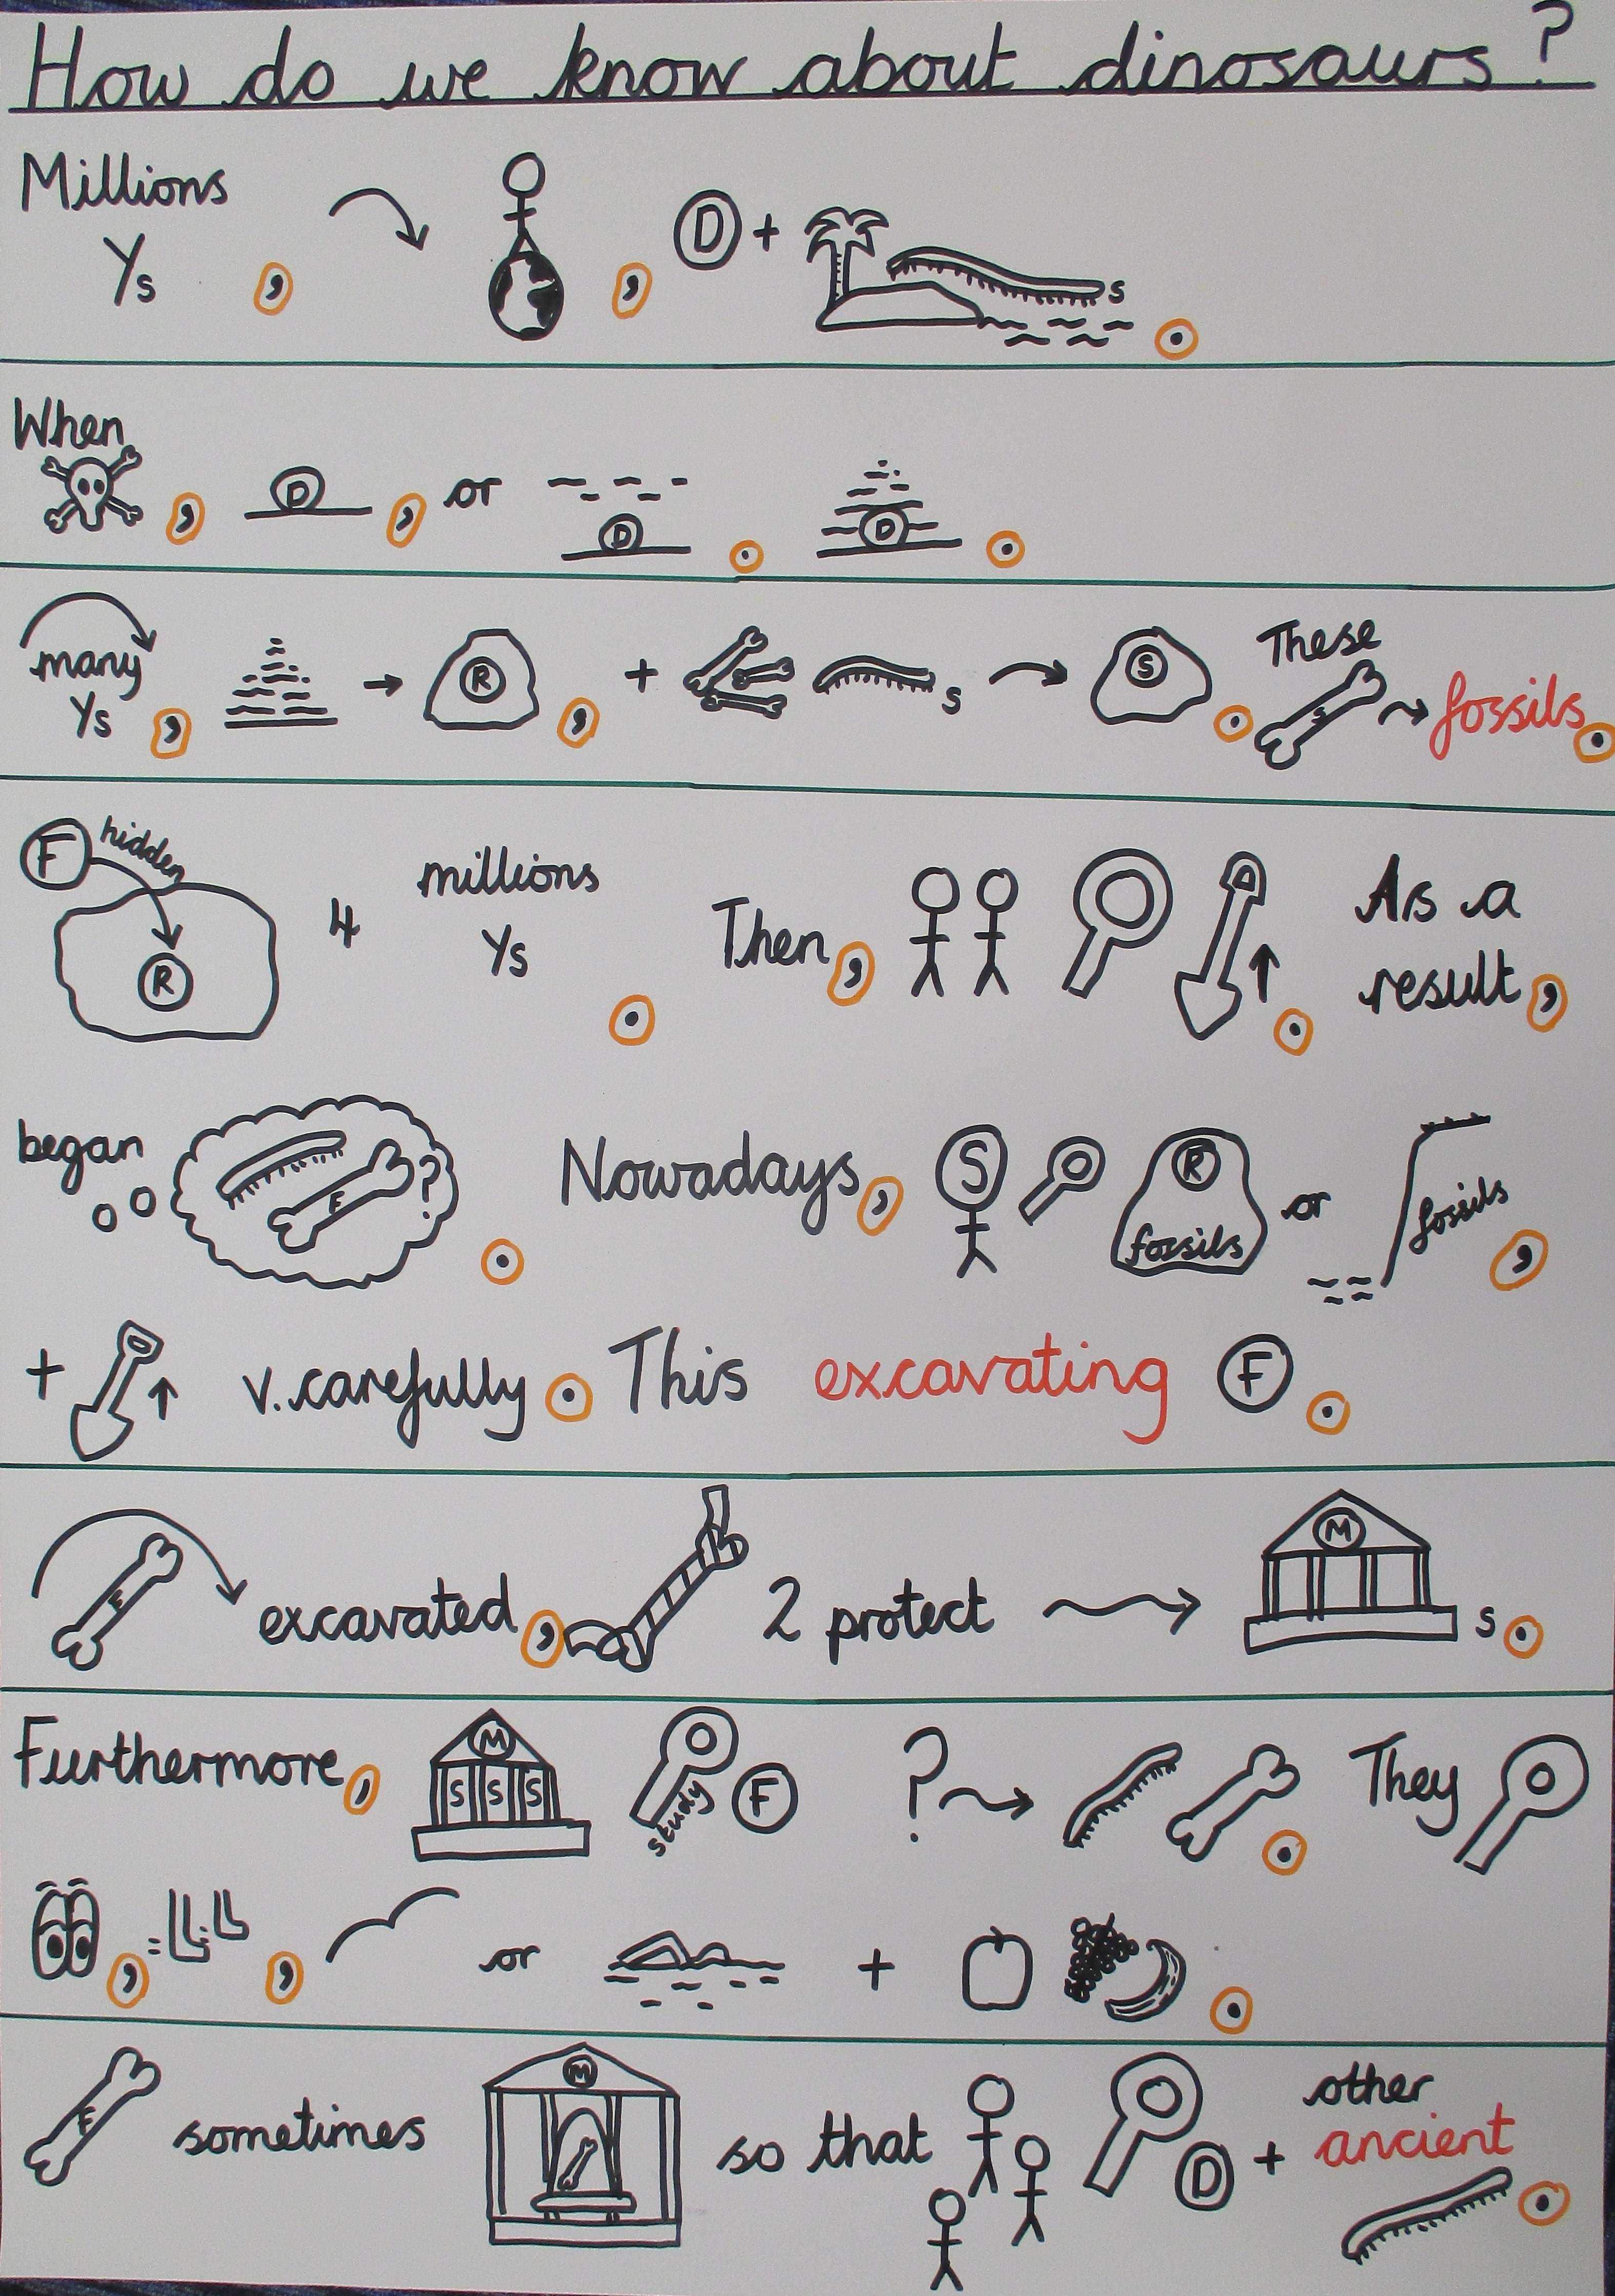 How do we know about dinosaurs?
Millions
Ys , , D + s .
When
, D , or D . D .
many
Ys , R , + s S . These s fossils .
F hidden
R 4 millions
Ys . Then , . As a
result ,
began F ? . Nowadays , S R fossils or fossils ,
+ v. carefully . This excavating F .
F excavated , 2 protect M s .
Furthermore , M S S S study F ? . They
, = , or + .
F sometimes M so that D + other
ancient .